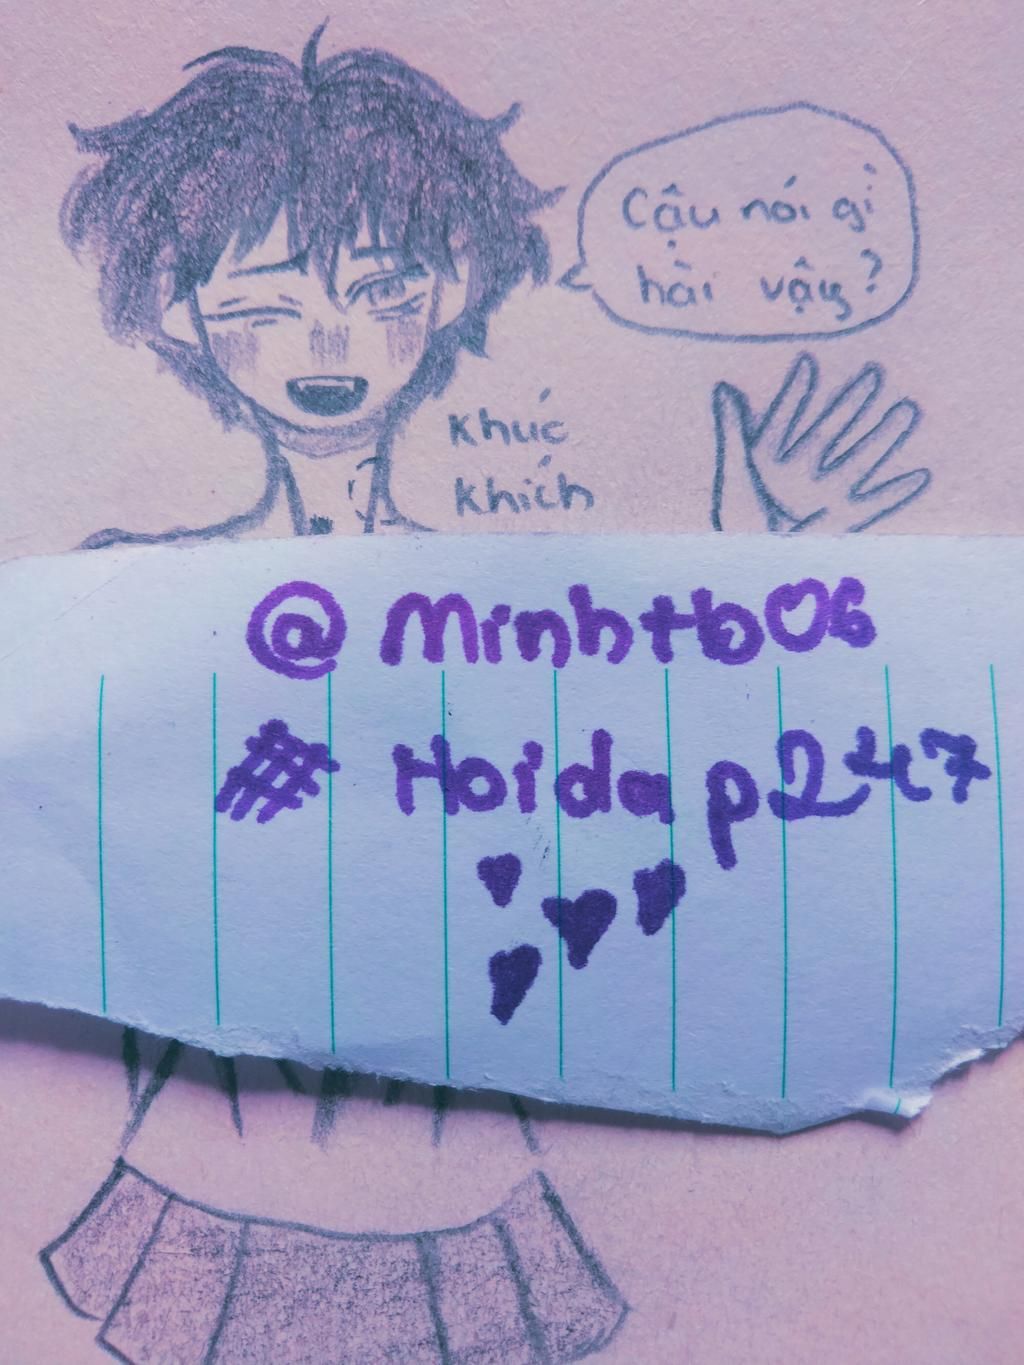 Cậu nói gì
hài vậy?
Khúc
Khích
@Minhtb06
#Hoidap247